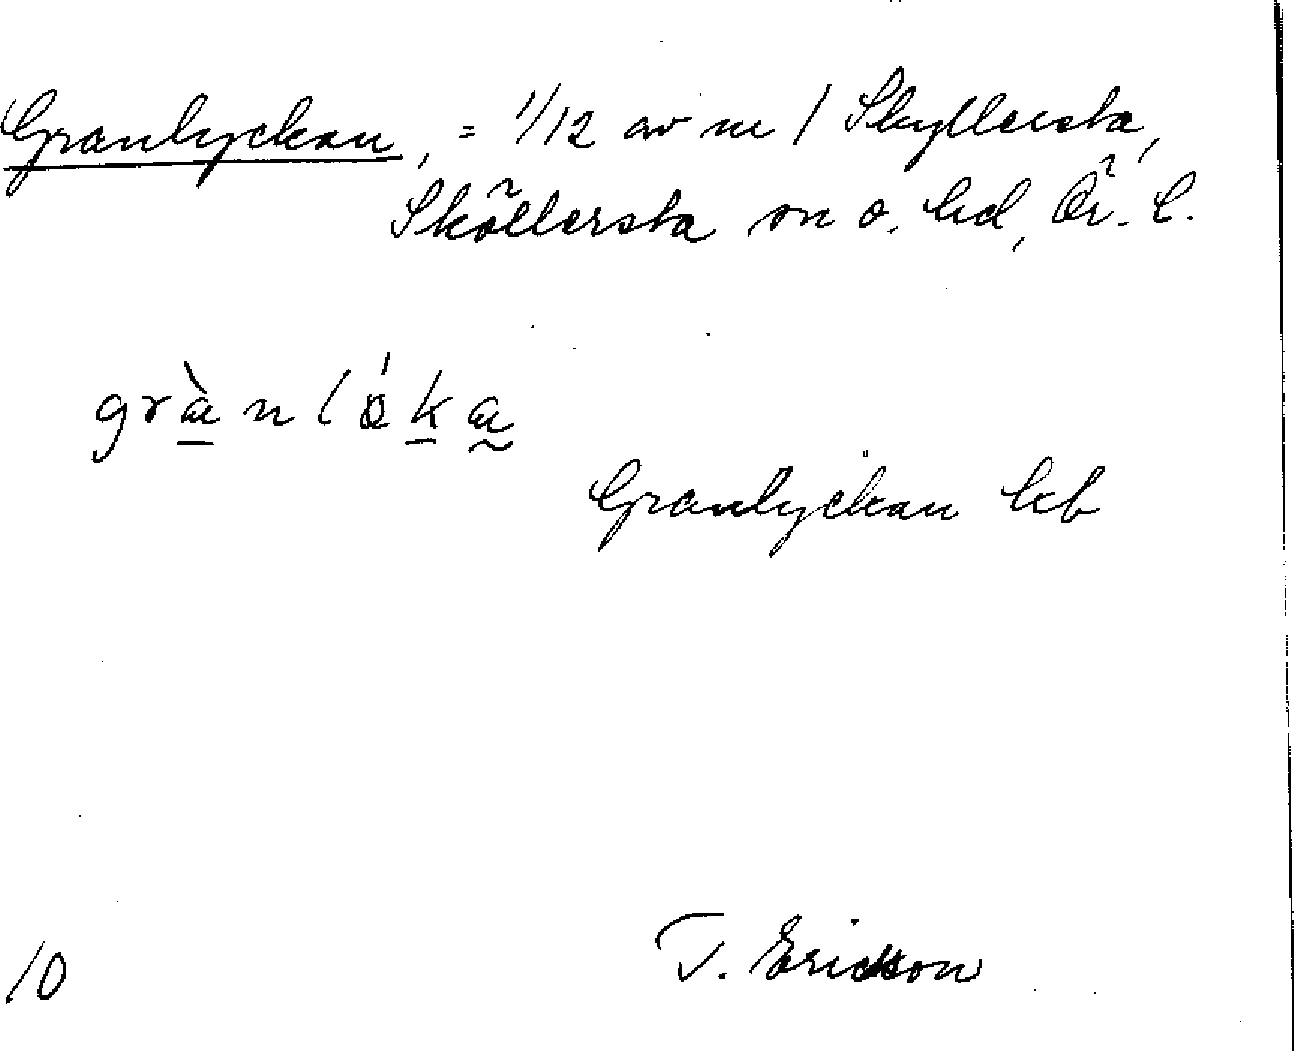 Granlyckan, = 1/12 av nr 1 Skyllersta,
Sköllersta sn o. hd, Ör. l.
grànlǿka
Granlyckan kb
10 T. Ericsson